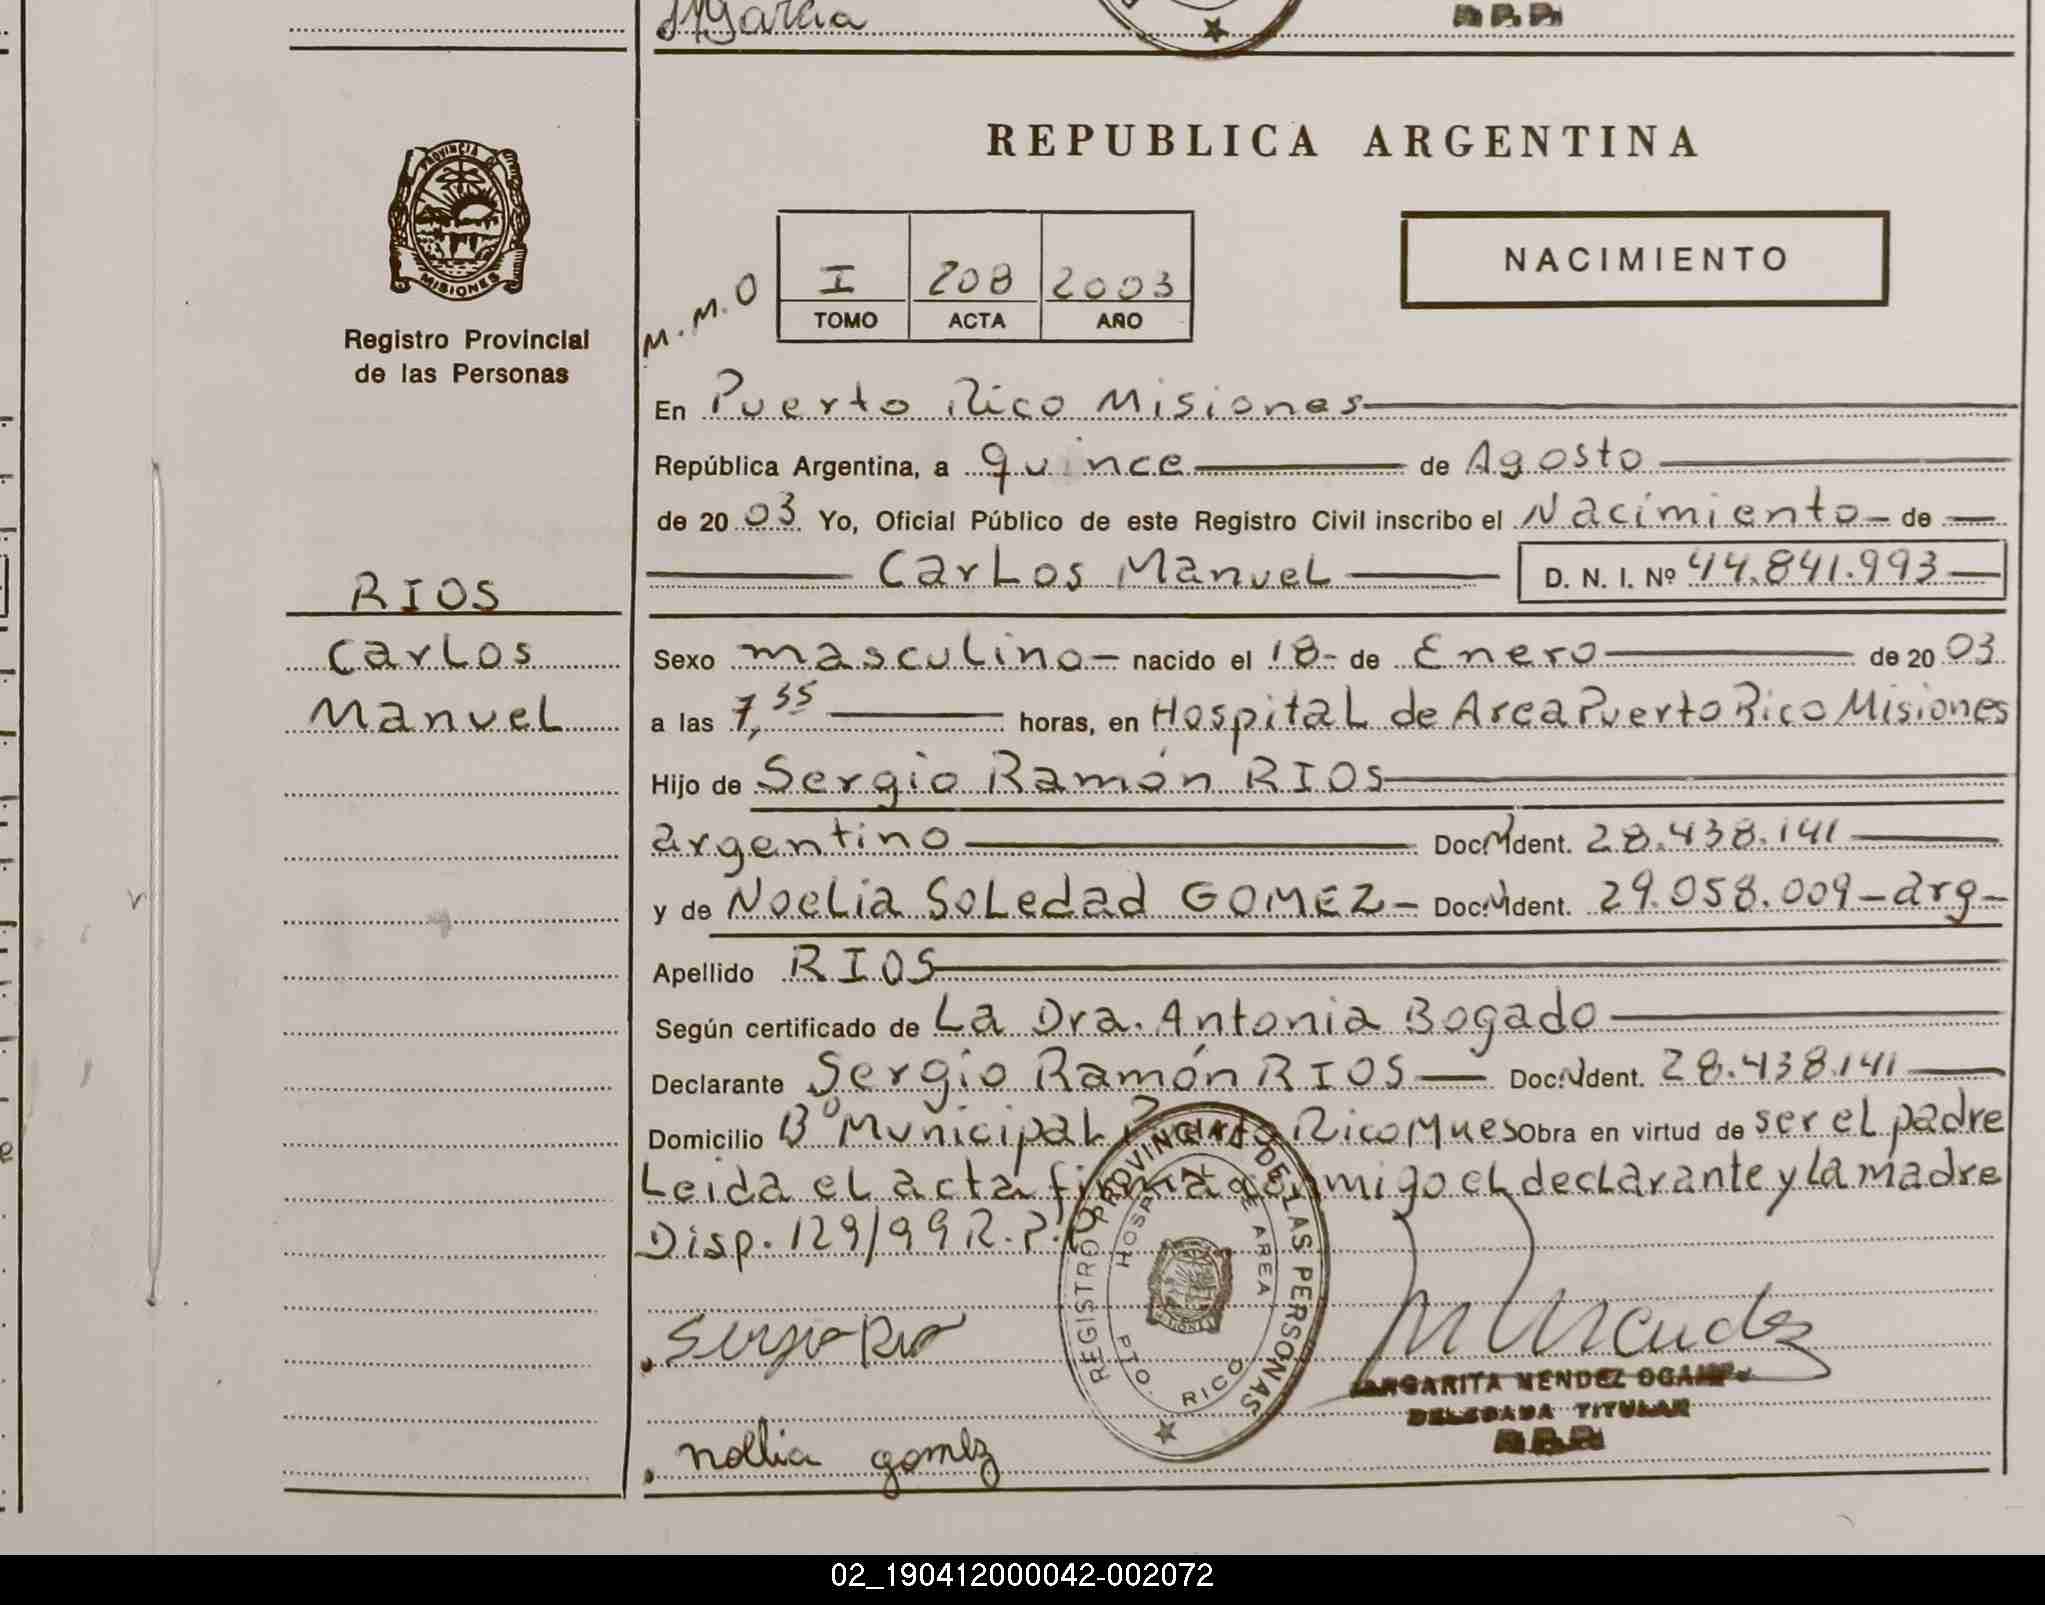 REPUBLICA ARGENTINA
PROVINCIA DE
MISIONES
Registro Provincial
de las Personas
M.M.O
I 208 2003
TOMO ACTA AÑO
NACIMIENTO
En Puerto Rico Misiones
República Argentina, a quince de Agosto
de 20 03 Yo, Oficial Público de este Registro Civil inscribo el Nacimiento de
Carlos Manuel D. N. I. Nº 44.841.993
RIOS
Carlos
Manuel
Sexo masculino nacido el 18 de Enero de 20 03
a las 7,35 horas, en Hospital de Area Puerto Rico Misiones
Hijo de Sergio Ramón RIOS
argentino Doc. Ident. 28.438.141
y de Noelia Soledad GOMEZ Doc. Ident. 29.058.009 - arg
Apellido RIOS
Según certificado de La Dra. Antonia Bogado
Declarante Sergio Ramón RIOS Doc. Ident. 28.438.141
Domicilio Bº Municipal Puerto Rico Mnes Obra en virtud de ser el padre
Leida el acta firma conmigo el declarante y la madre
Disp. 129/99 R.P.P
REGISTRO PROVINCIAL DE LAS PERSONAS
HOSPITAL DE AREA
PTO. RICO
Sergio Rios
M Mendez
MARGARITA MENDEZ OCAMPO
DELEGADA TITULAR
R.P.P.
noelia gomez
02_190412000042-002072